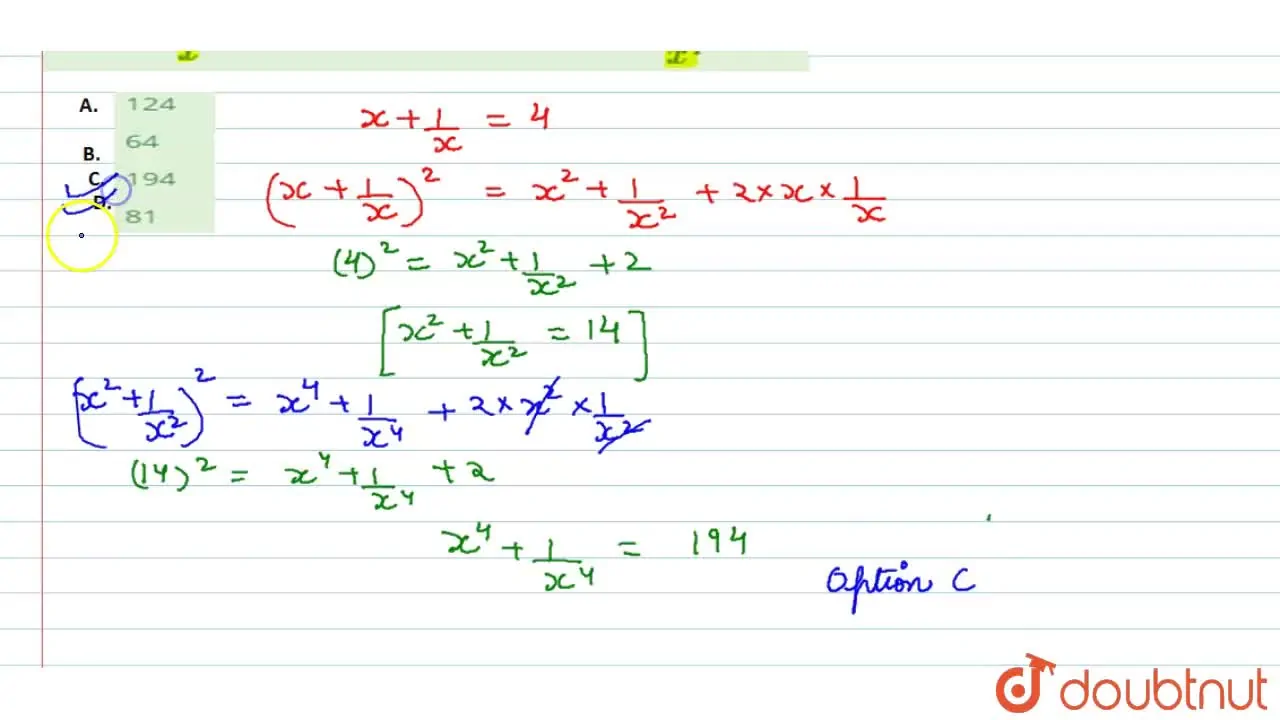 A. 124
B. 64
C. 194
D. 81
x + 1/x = 4
(x + 1/x)² = x² + 1/x² + 2 × x × 1/x
(4)² = x² + 1/x² + 2
[x² + 1/x² = 14]
(x² + 1/x²)² = x⁴ + 1/x⁴ + 2 × x² × 1/x²
(14)² = x⁴ + 1/x⁴ + 2
x⁴ + 1/x⁴ = 194
Option C
doubtnut